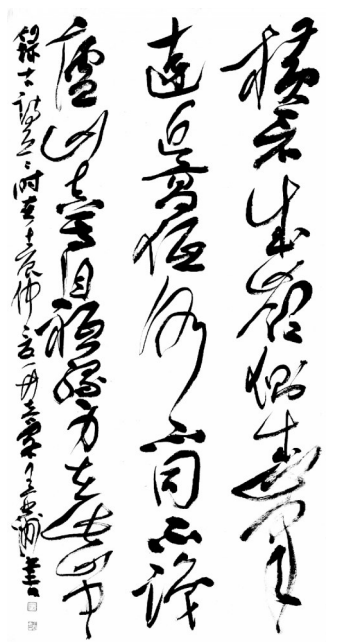 橫看成嶺側成峯
遠近高低各不同不識
廬山真面目祇緣身在此山中
錄古詩 時在 書